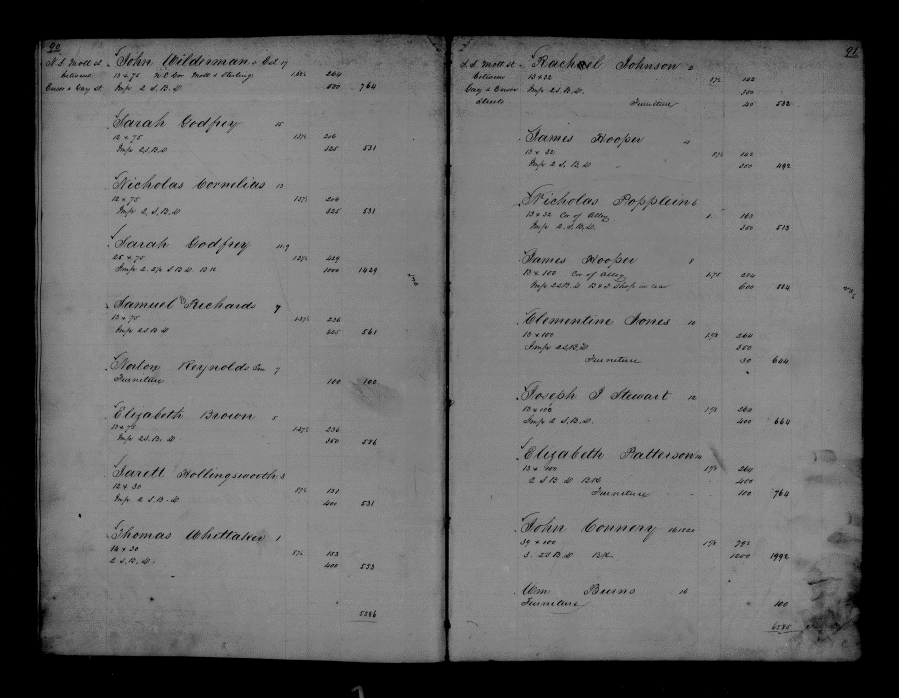 90
N. S. Mott st John Wilderman Cor. 17
between 13 x 75 N.E. Cor Mott & Sterling 264
Ensor & Gay st Imp 2 S. B. D 500 764
Sarah Godfrey 15
12 x 75 206
Imp 2 S. B. D 325 531
Nicholas Cornelias 13
12 x 75 206
Imp 2, S, B, D 325 531
Sarah Godfrey 11.9
25 x 75 429
Imp 2. S B. D. B H 1000 1429
Samuel Richards 7
13 x 75 236
Imp 2 S B D 325 561
Norton Reynolds 7
Furniture 100 100
Elizabeth Brown 5
13 x 75 236
Imp 2 S. B. D 350 586
Jarett Hollingsworth 3
12 x 30 87½ 131
Imp 2 S. B. D 400 531
Thomas Whittaker 1
14 x 30 87½ 153
2 S. B. D. 400 553
5586
91
S. S. Mott st Rachael Johnson 2
between 13 x 22 87½ 142
Gay & Ensor Imp 2 S. B. D. 350
Streets Furniture 40 532
James Hooper 4
13 x 22 87½ 142
Imp 2 S. B D 350 492
Nicholas Popplein 6
13 x 22 Cor of Alley 1. 163
Imp 2. S. B. D. 350 513
James Hooper 8
13 x 100 Cor of Alley 1.75 284
Imp 2 S B. D B & S Shop in rear 600 884
Clementine Jones 10
13 x 100 264
Imp 2 S, B, D 350
Furniture 30 644
Joseph J Stewart 12
13 x 100 264
Imp 2 S. B. D. 400 664
Elizabeth Patterson 14
13 x 100 264
2 S B D B H 400
Furniture 100 764
John Connery
39 x 100 792
3. 2 S B. D B H 1200 1992
Wm Burns 16
Furniture 100
6585